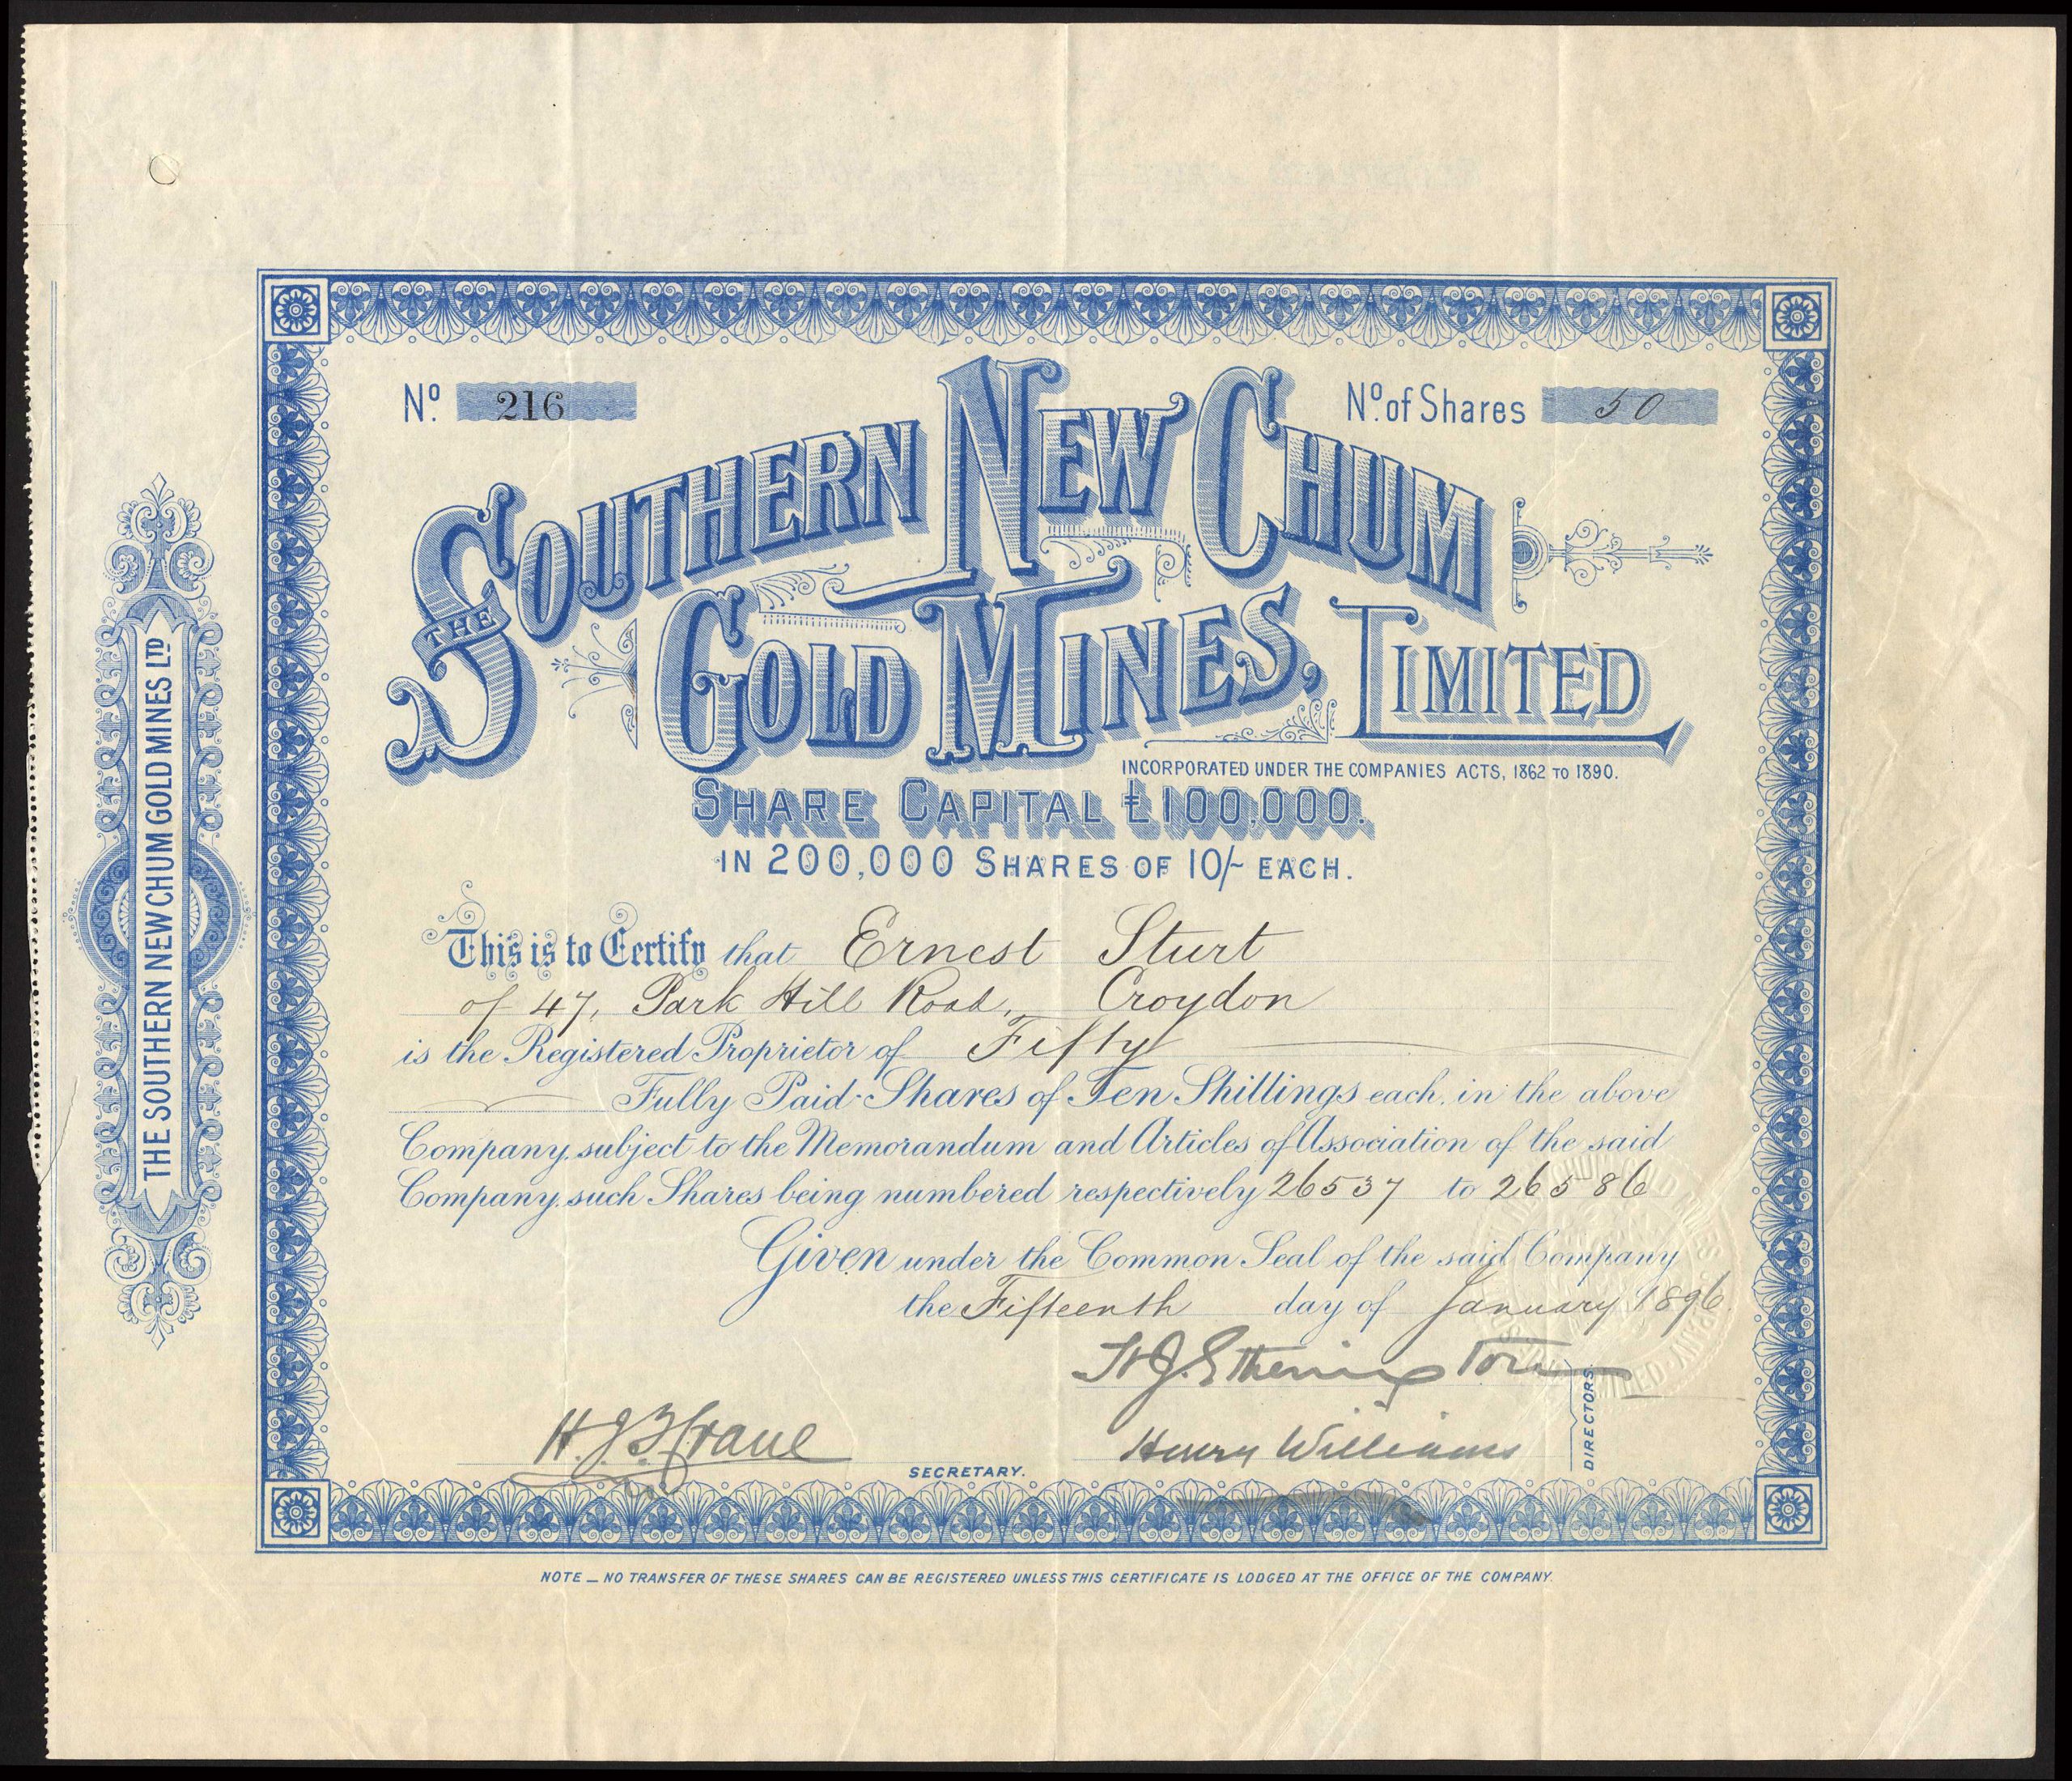 Nº. 216
Nº. of Shares 50
THE SOUTHERN NEW CHUM
GOLD MINES, LIMITED
INCORPORATED UNDER THE COMPANIES ACTS, 1862 TO 1890.
SHARE CAPITAL £100,000.
IN 200,000 SHARES OF 10/- EACH.
This is to Certify that Ernest Sturt
of 47, Park Hill Road, Croydon
is the Registered Proprietor of Fifty
Fully Paid Shares of Ten Shillings each, in the above
Company, subject to the Memorandum and Articles of Association of the said
Company, such Shares being numbered respectively 26537 to 26586
Given under the Common Seal of the said Company
the Fifteenth day of January 1896.
Etherington
H. J. Crane
SECRETARY.
Henry Williams
DIRECTORS.
NOTE — NO TRANSFER OF THESE SHARES CAN BE REGISTERED UNLESS THIS CERTIFICATE IS LODGED AT THE OFFICE OF THE COMPANY.
THE SOUTHERN NEW CHUM GOLD MINES LTD